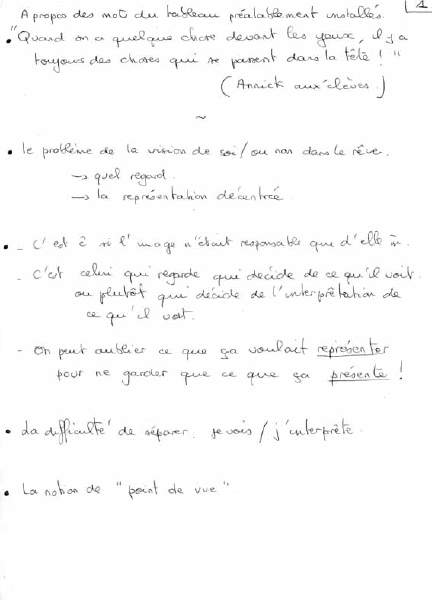 1
A propos des mots du tableau préalablement installés.
• "Quand on a quelque chose devant les yeux, il y a
toujours des choses qui se passent dans la tête ! "
(Annick aux élèves.)
~
• le problème de la vision de soi / ou non dans le rêve.
→ quel regard.
→ la représentation décentrée
• - C'est c si l'image n'était responsable que d'elle m̂.
- C'est celui qui regarde qui décide de ce qu'il voit.
ou plutôt qui décide de l'interprétation de
ce qu'il voit.
- On peut oublier ce que ça voulait représenter
pour ne garder que ce que ça présente !
• La difficulté de séparer. je vois / j'interprète.
• La notion de "point de vue"